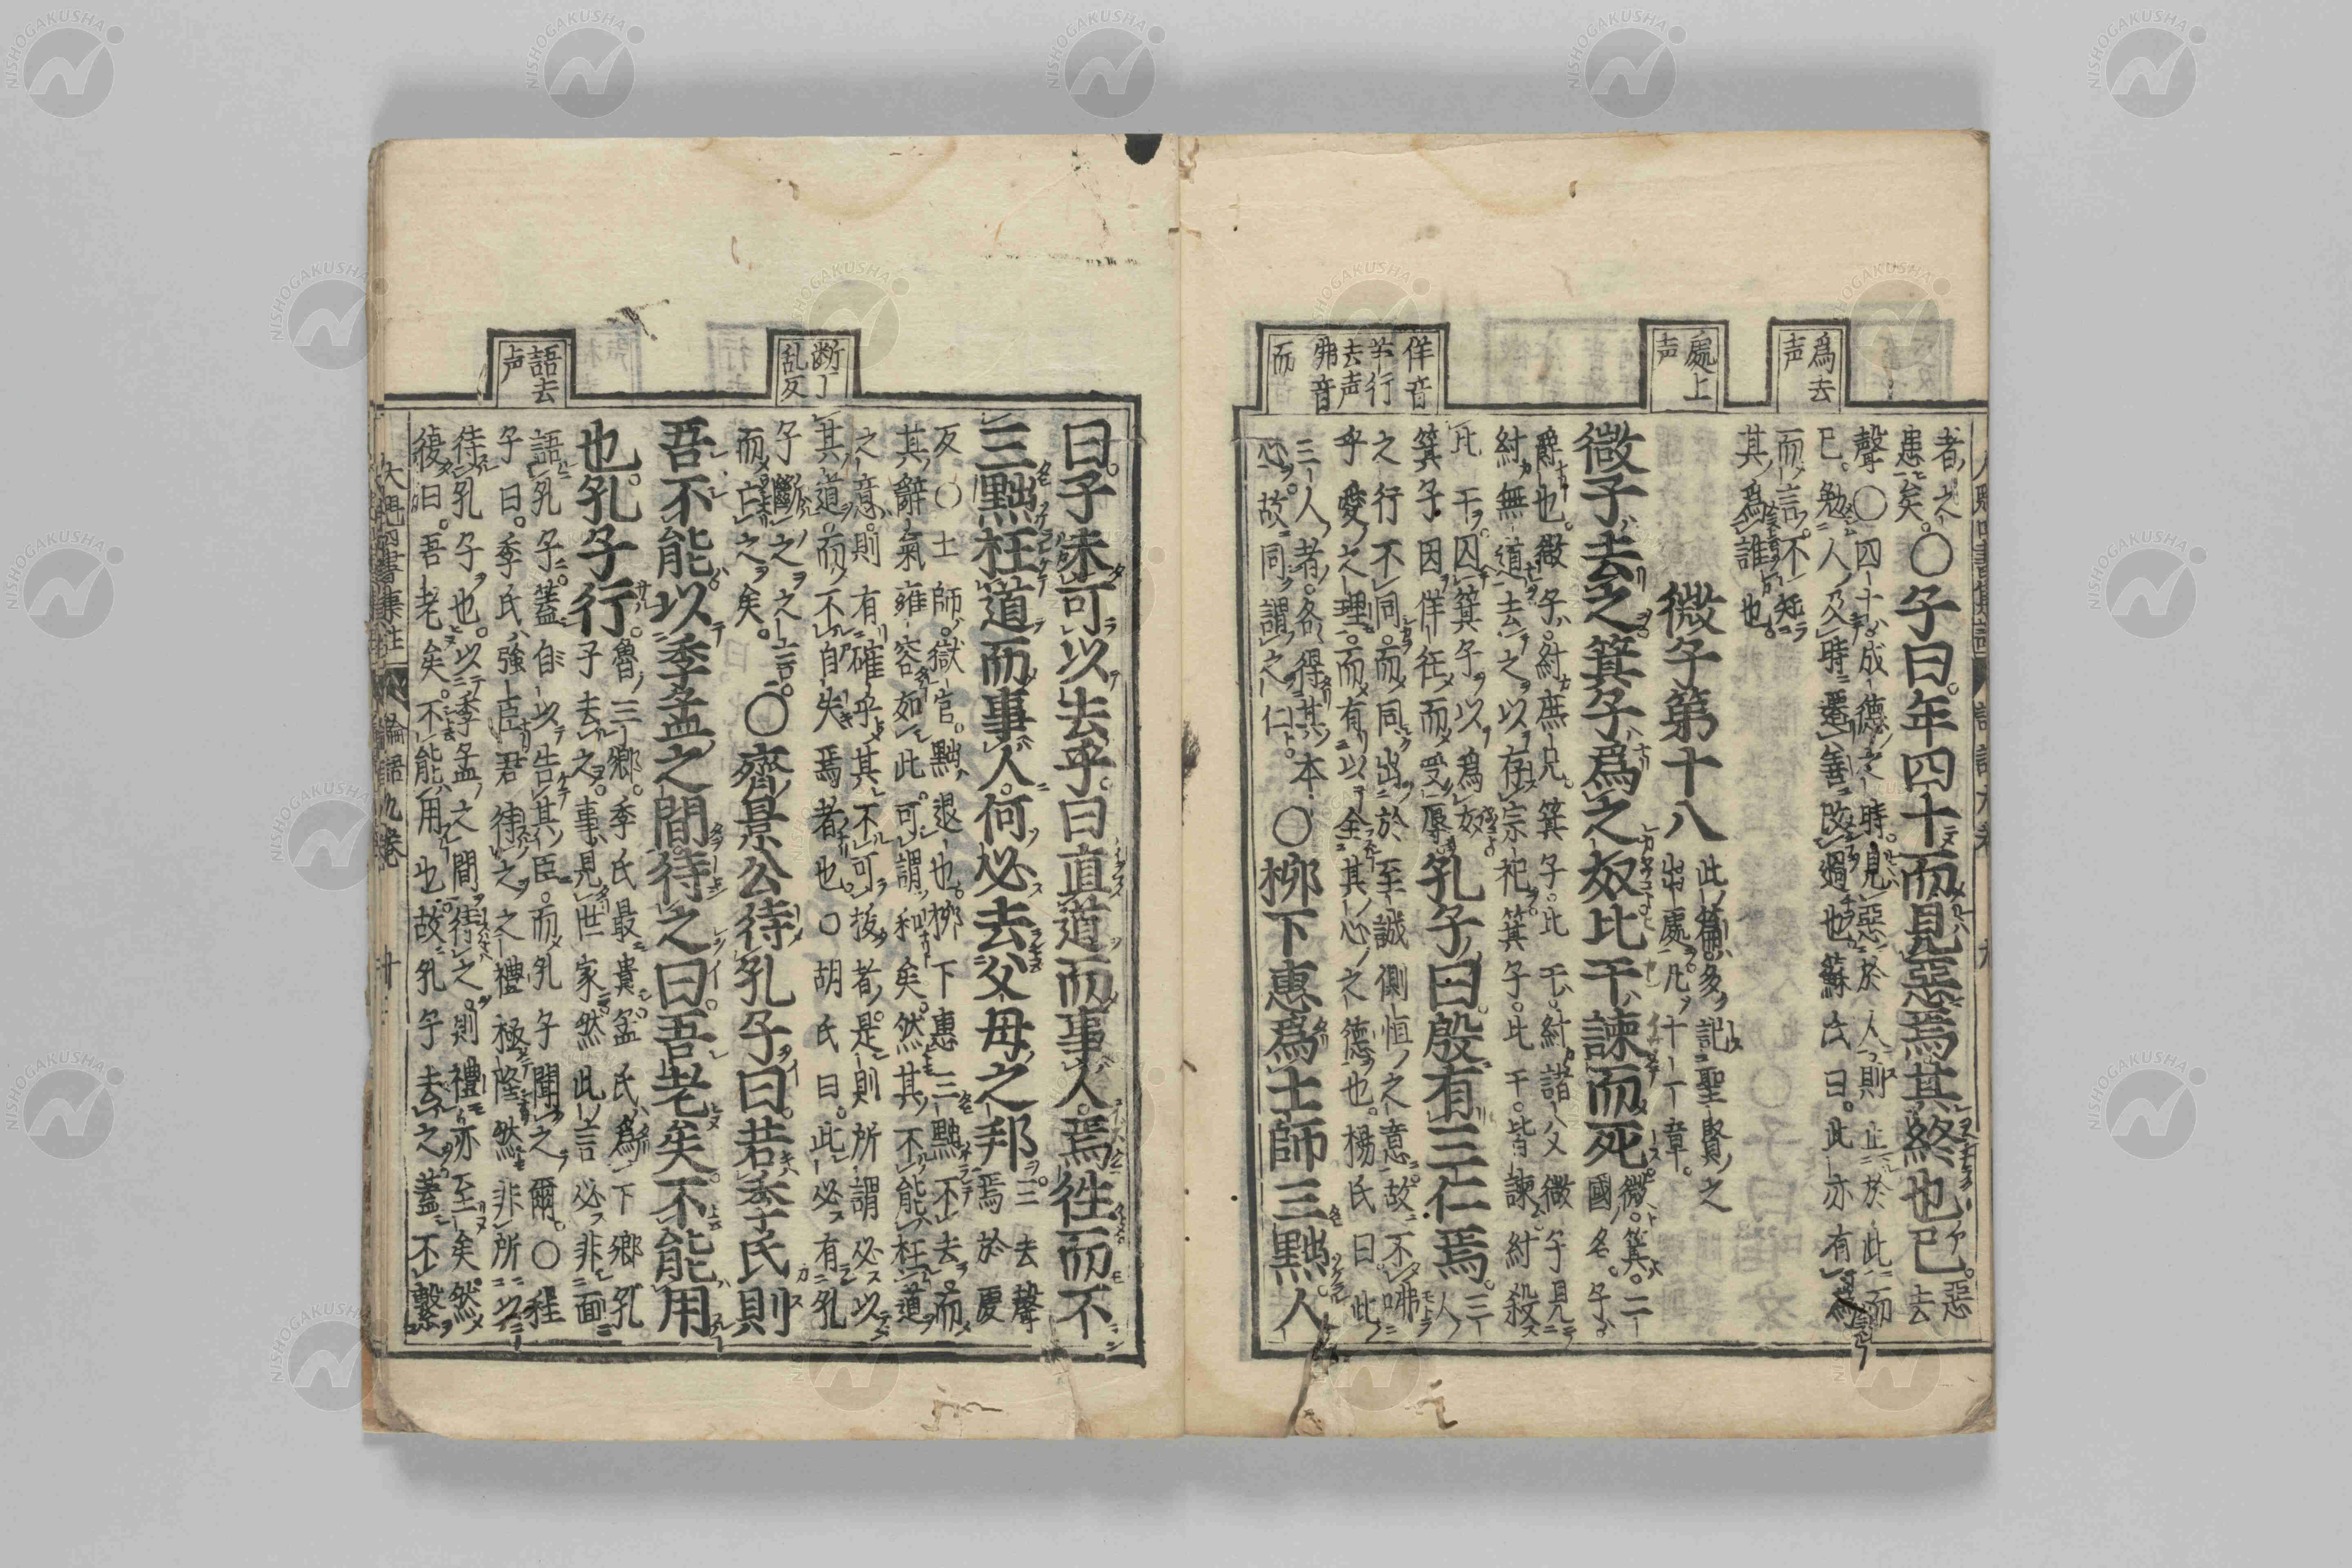 爲去
声
處上
声
佯音
羊行
去声
咈音
而
者之
患矣。
○子曰。年四十而見惡焉其終也已。
惡
去
聲○四十成德之時。見惡於人則止於此而
已。勉人及時遷善改過也。蘇氏曰。此亦有爲
而言。不知
其爲誰也。
微子第十八
此篇多記聖賢之
出處。凡十一章。
微子去之。箕子爲之奴。比干諫而死。
微。箕。二
國名。子。
爵也。微子。紂庶兄。箕子。比干。紂諸父。微子見
紂無道去之以存宗祀。箕子。比干。皆諫。紂殺
比干。囚箕子以爲奴。
箕子因佯狂而受辱。
孔子曰。殷有三仁焉。
三
人
之行不同。而同出於至誠惻怛之意。故不咈
乎愛之理。而有以全其心之德也。楊氏曰。此
三人者。各得其本
心。故同謂之仁。
○柳下惠爲士師。三黜。人
断丁
乱反
語去
声
曰。子未可以去乎。曰直道而事人。焉往而不
三黜枉道而事人。何必去父母之邦。
三去聲
焉於虔
反○士師。獄官。黜退也。柳下惠三黜不去。而
其辭氣雍容如此。可謂和矣。然其不能枉道
之意。則有確乎其不可拔者。是則所謂必以
其道。而不自失焉者也。○胡氏曰。此必有孔
子斷之之言。
而亡之矣。
○齊景公待孔子曰。若季氏則
吾不能以季孟之間待之曰。吾老矣。不能用
也。孔子行。
魯三卿。季氏最貴。孟氏爲下卿。孔
子去之。事見世家。然此言必非面
語孔子。蓋自以告其臣。而孔子聞之爾。○程
子曰。季氏強臣。君待之之禮極隆。然非所以
待孔子也。以季孟之間待之。則禮亦至矣。然
復曰。吾老矣。不能用也。故孔子去之。蓋不繫
大魁四書集註
論語九卷
十